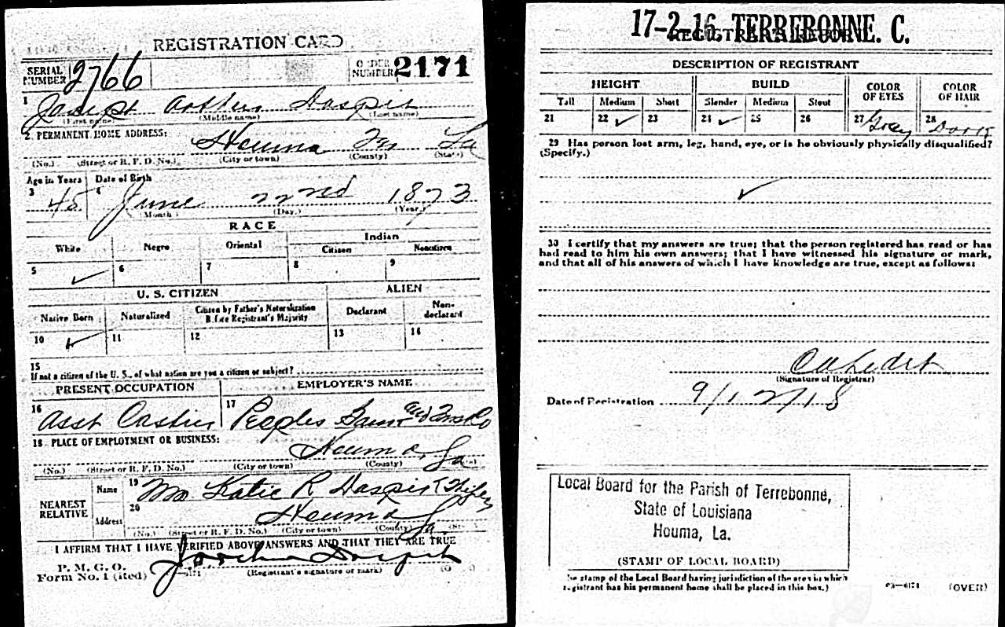 REGISTRATION CARD
SERIAL NUMBER 2766 ORDER NUMBER 2171
1 Joseph Arthur Daspit
(First name) (Middle name) (Last name)
2. PERMANENT HOME ADDRESS:
Houma Ter La
(No.) (Street or R. F. D. No.) (City or town) (County) (State)
Age in Years Date of Birth
3 45 4 June 22nd 1873
(Month) (Day) (Year)
RACE
White Negro Oriental Indian
Citizen Noncitizen
5 ✓ 6 7 8 9
U. S. CITIZEN ALIEN
Native Born Naturalized Citizen by Father's Naturalization Before Registrant's Majority Declarant Non-declarant
10 ✓ 11 12 13 14
15
If not a citizen of the U. S., of what nation are you a citizen or subject?
PRESENT OCCUPATION EMPLOYER'S NAME
16 Asst Cashier 17 Peoples and
18 PLACE OF EMPLOYMENT OR BUSINESS:
Houma La
(No.) (Street or R. F. D. No.) (City or town) (County) (State)
NEAREST RELATIVE
Name 19 Mrs Katie R Daspit (Wife)
Address 20 Houma La
(No.) (Street or R. F. D. No.) (City or town) (County) (State)
I AFFIRM THAT I HAVE VERIFIED ABOVE ANSWERS AND THAT THEY ARE TRUE
P. M. G. O.
Form No. 1 (Red) Daspit
(Registrant's signature or mark)
17-2-16 TERREBONNE. C.
REGISTRAR'S REPORT
DESCRIPTION OF REGISTRANT
HEIGHT BUILD COLOR OF EYES COLOR OF HAIR
Tall Medium Short Slender Medium Stout
21 22 ✓ 23 24 ✓ 25 26 27 Grey 28 Dark
29 Has person lost arm, leg, hand, eye, or is he obviously physically disqualified?
(Specify.)
✓
30 I certify that my answers are true; that the person registered has read or has
had read to him his own answers; that I have witnessed his signature or mark,
and that all of his answers of which I have knowledge are true, except as follows:
(Signature of Registrar)
Date of Registration 9/12/18
Local Board for the Parish of Terrebonne,
State of Louisiana
Houma, La.
(STAMP OF LOCAL BOARD)
The stamp of the Local Board having jurisdiction of the area in which
registrant has his permanent home shall be placed in this box.)
03-6171 (OVER)